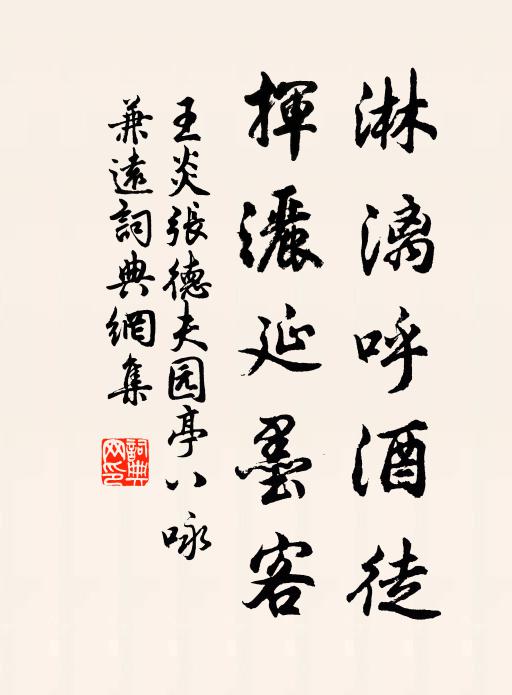 淋漓呼酒徒
揮灑延墨客
王炎張德夫园亭八咏
兼遠詞典網集
詞典網印